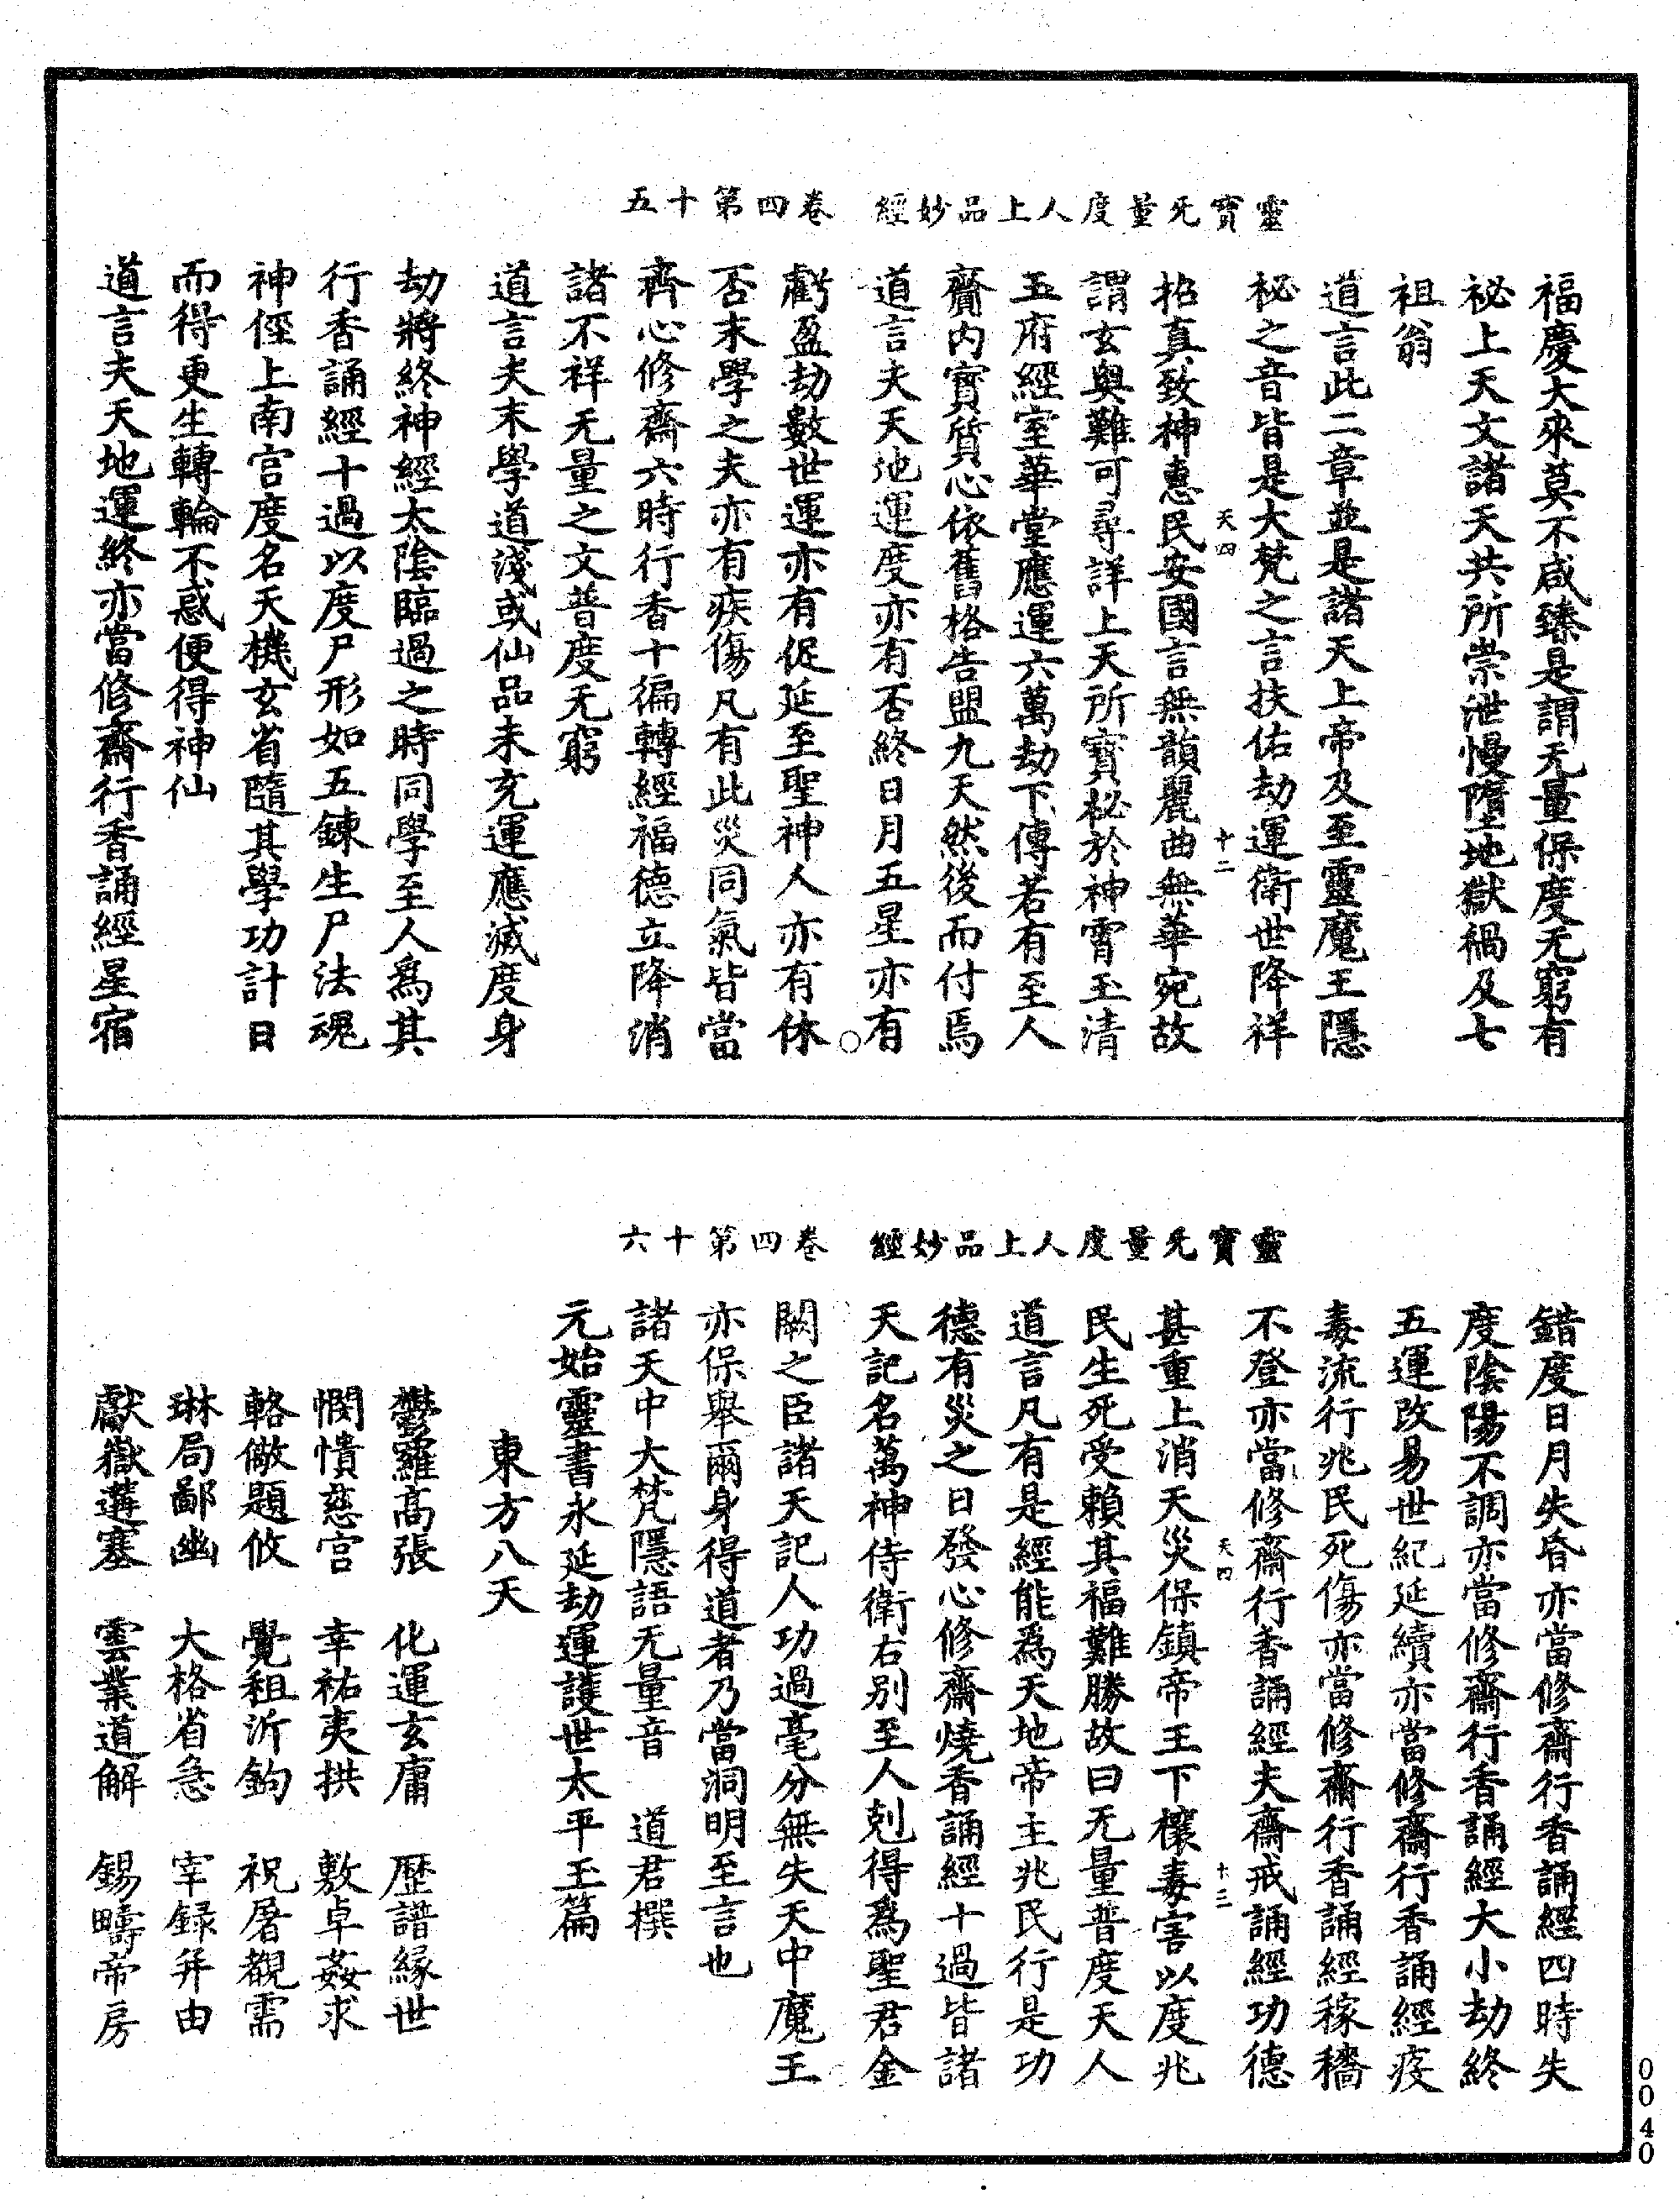 靈寶旡量度人上品妙經　卷四第十五
福慶大來莫不咸臻是謂无量保度无窮有
祕上天文諸天共所崇泄慢墮地獄禍及七
祖翁
道言此二章並是諸天上帝及至靈魔王隱
祕之音皆是大梵之言扶佑劫運衛世降祥
天四　十二
招真致神惠民安國言無韻麗曲無華宛故
謂玄奧難可尋詳上天所寶祕於神霄玉清
玉府經室華堂應運六萬劫下傳若有至人
齎內寶質心依舊格告盟九天然後而付焉
道言夫天地運度亦有否終日月五星亦有
虧盈劫數世運亦有促延至聖神人亦有休
否末學之夫亦有疾傷凡有此災同氣皆當
齊心修齋六時行香十徧轉經福德立降消
諸不祥无量之文普度无窮
道言夫末學道淺或仙品未充運應滅度身
劫將終神經太陰臨過之時同學至人為其
行香誦經十過以度尸形如五鍊生尸法魂
神俓上南宮度名天機玄省隨其學功計日
而得更生轉輪不惑便得神仙
道言夫天地運終亦當修齋行香誦經星宿
靈寶旡量度人上品妙經　卷四第十六
錯度日月失昏亦當修齋行香誦經四時失
度陰陽不調亦當修齋行香誦經大小劫終
五運改易世紀延續亦當修齋行香誦經疫
毒流行兆民死傷亦當修齋行香誦經稼穡
不登亦當修齋行香誦經夫齋戒誦經功德
天四　十三
甚重上消天災保鎮帝王下禳毒害以度兆
民生死受賴其福難勝故曰无量普度天人
道言凡有是經能為天地帝主兆民行是功
德有災之日發心修齋燒香誦經十過皆諸
天記名萬神侍衛右別至人剋得為聖君金
闕之臣諸天記人功過毫分無失天中魔王
亦保舉爾身得道者乃當洞明至言也
諸天中大梵隱語无量音　道君撰
元始靈書永延劫運護世太平玉篇
東方八天
鬱羅高張　化運玄庸　歷譜緣世
憫憒慈宮　幸祐夷拱　敷卓姦求
輅儆題攸　覺租沂鉤　祝屠覩需
琳局鄙幽　大格省急　宰録弁由
獻嶽遘塞　雲業道解　錫疇帝房
0040